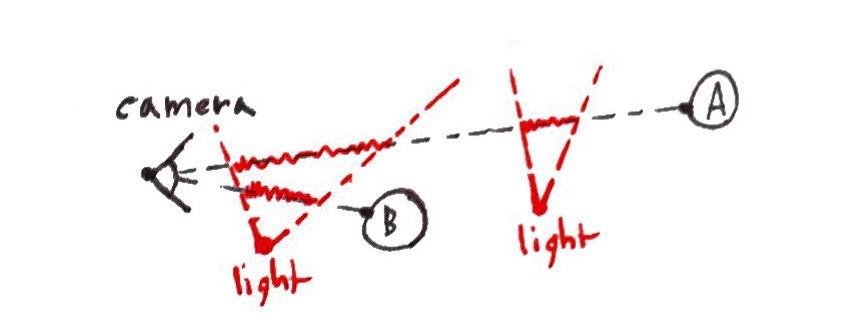 camera
A
B
light
light